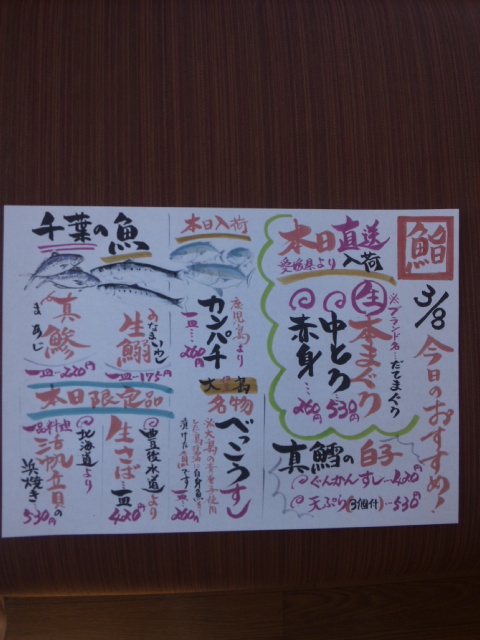 鮨
3/8 今日のおすすめ!
本日直送
愛媛県より入荷
生本まぐり
※ブランド名…だてまぐり
中とろ…530円
赤身…260円
真鱈の白子
ぐんかんすし…420円
天ぷら(3個付)…530円
本日入荷
鹿児島より
カンパチ
一皿…260円
大島名物
べっこうすし
一皿…260円
千葉の魚
まあじ
真鯵
一皿…220円
なまいわし
生鰯
一皿…175円
本日限定品
豊後水道より
生さば…一皿
420円
北海道より
活帆立貝の
浜焼き
530円